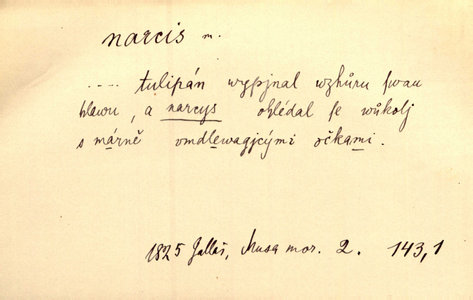 narcis m.
.... tulipán wypjnal wzhůru swau
hlawu, a narcys ohlédal se wůkolj
s márně omdlewagjcými očkami.
1825 Gallaš, Musa mor. 2. 143,1